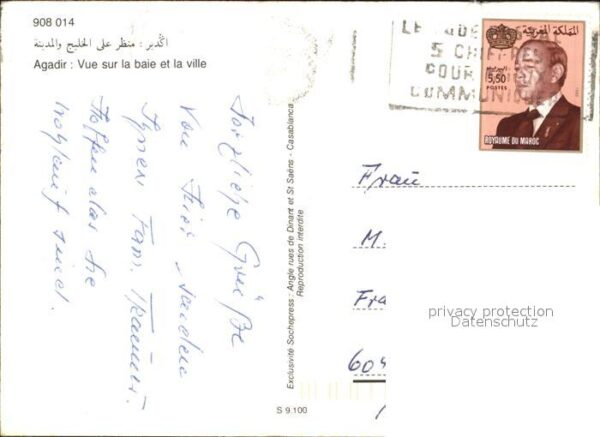 908 014
أكدير : منظر على الخليج والمدينة
Agadir : Vue sur la baie et la ville
Herzliche Grüße
von hier senden
Ihnen Fam.
Hoffen das Sie
wohlauf sind.
Exclusivité Sochepress : Angle rues de Dinant et St Saëns - Casablanca
Reproduction interdite
S 9.100
5 CHIFF
POUR
COMMUNIQU
المملكة المغربية
5,50
POSTES
ROYAUME DU MAROC
Frau
M.
Fra
60
privacy protection
Datenschutz